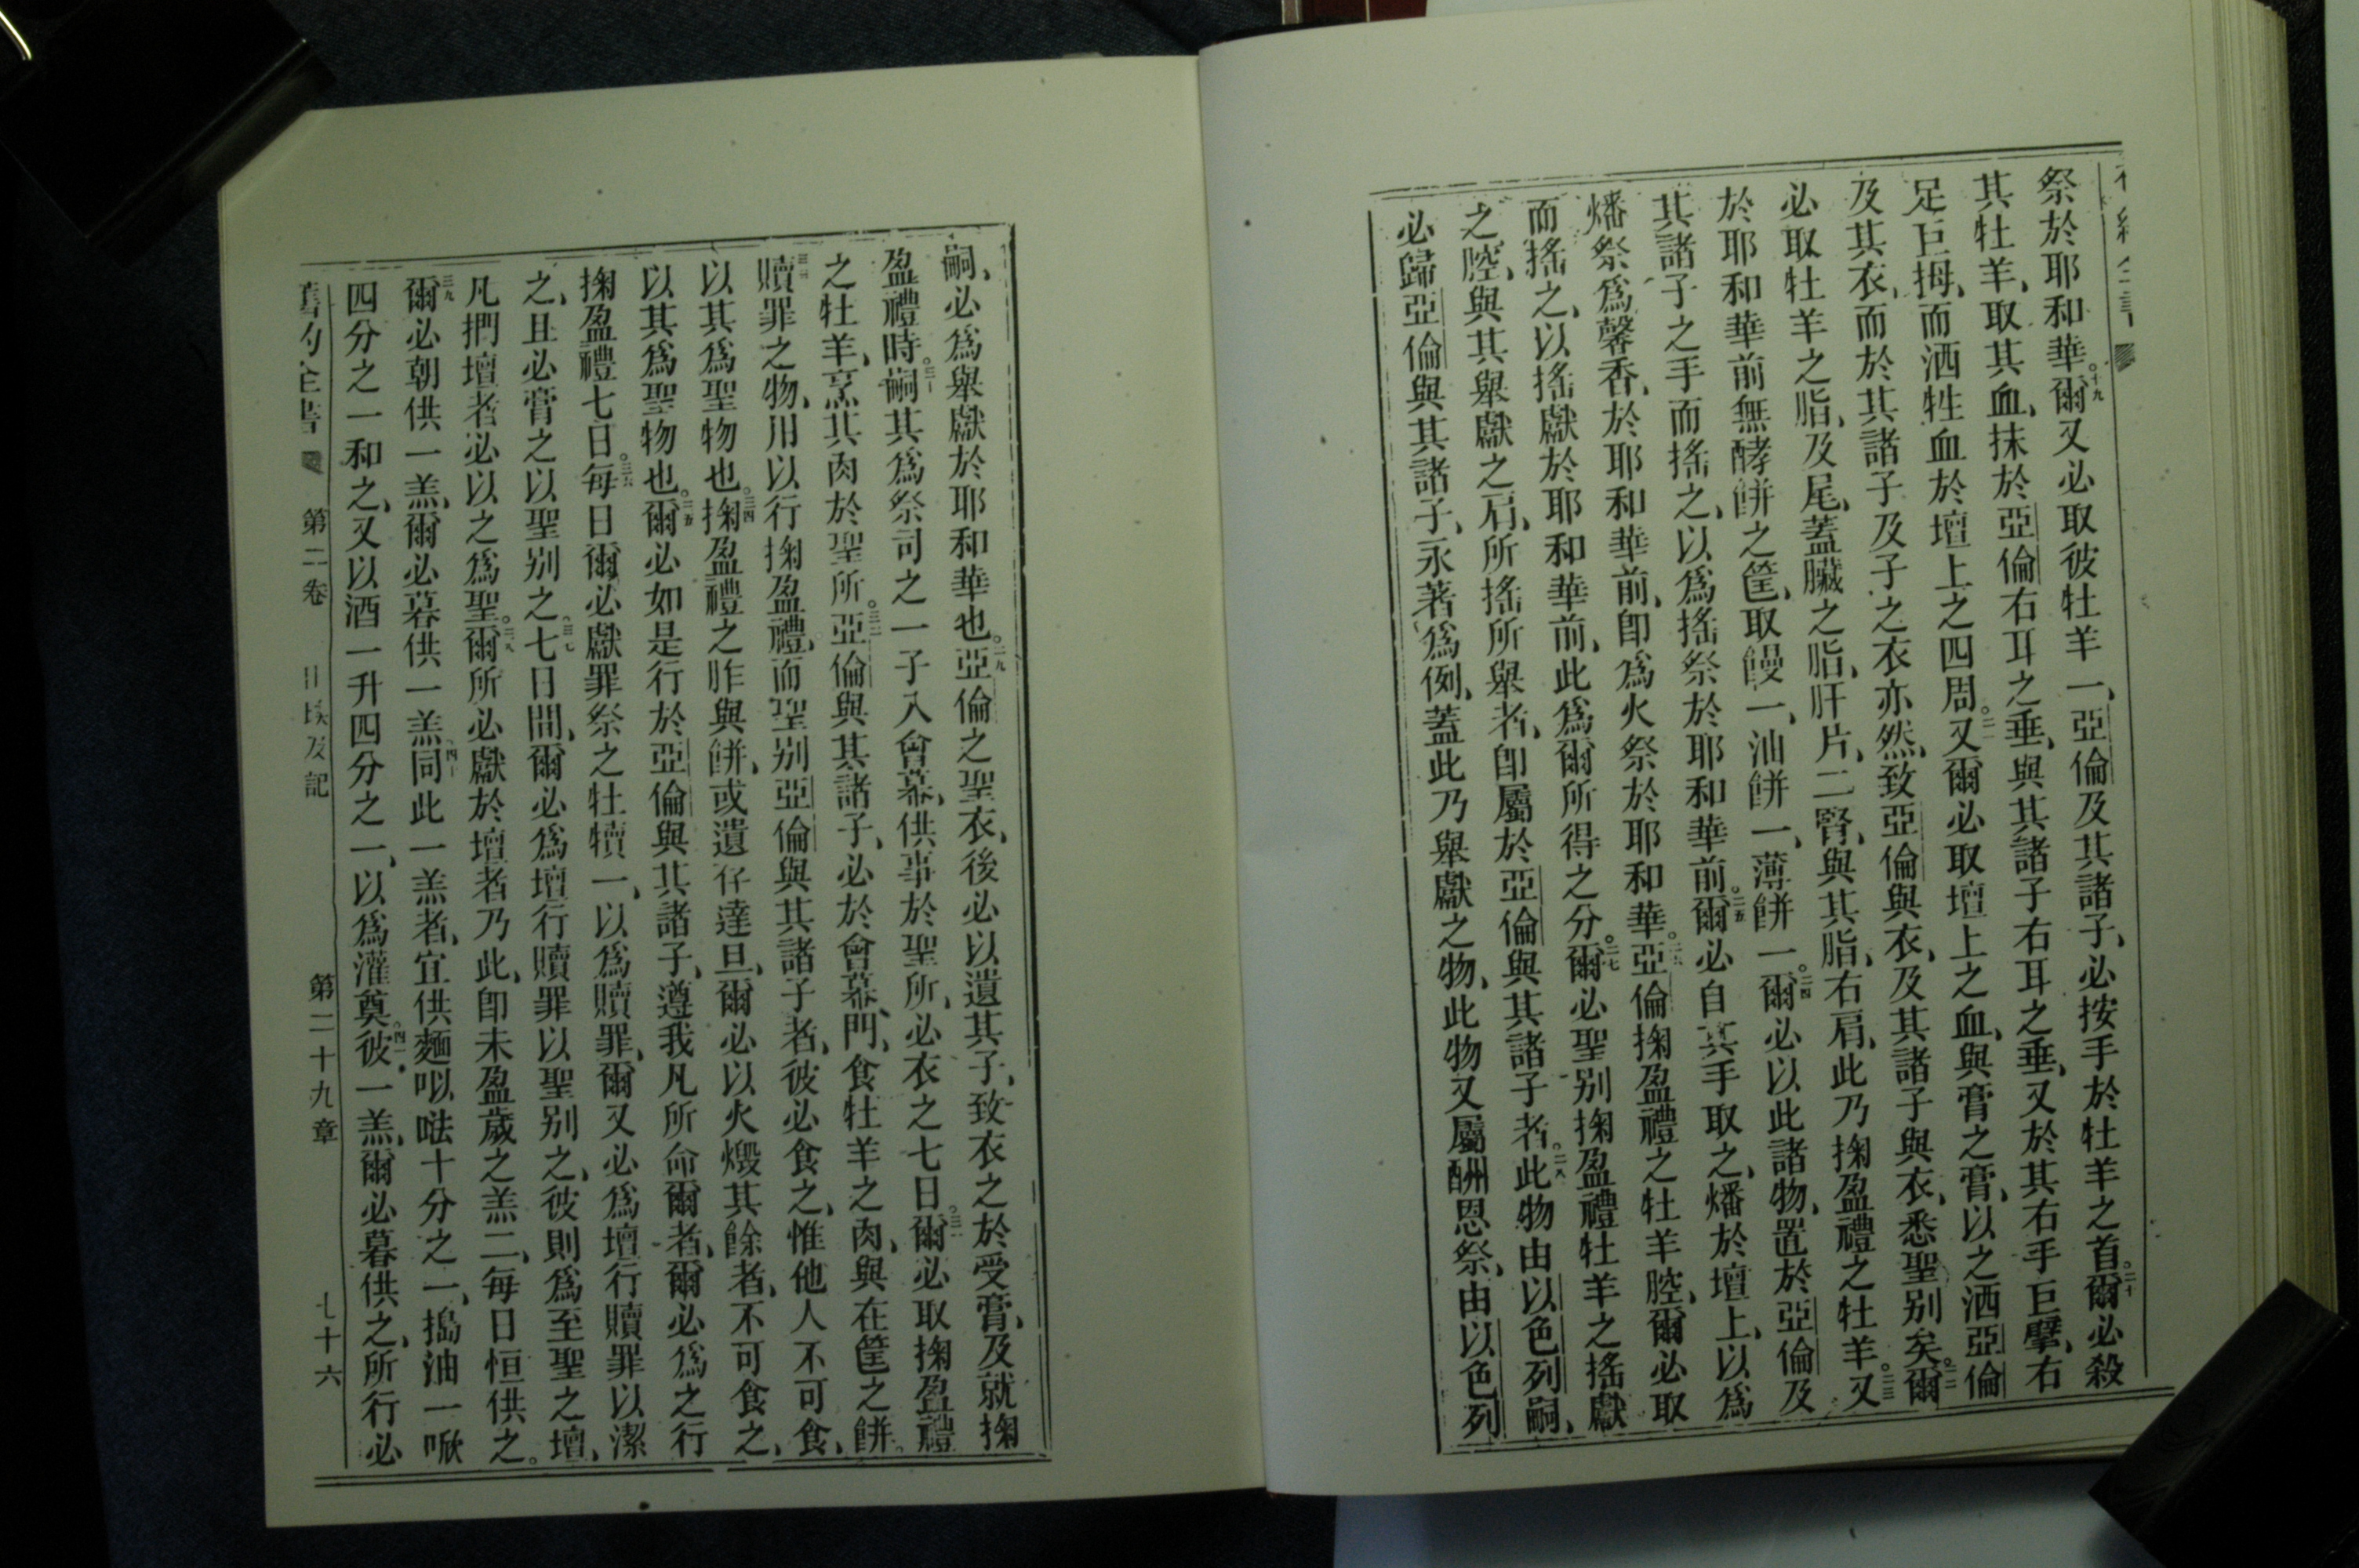 祭於耶和華。十九爾又必取彼牡羊一、亞倫及其諸子、必按手於牡羊之首。二十爾必殺
其牡羊、取其血、抹於亞倫右耳之垂、與其諸子右耳之垂、又於其右手巨擘、右
足巨拇、而洒牲血於壇上之四周。二一又爾必取壇上之血、與膏之膏、以之洒亞倫
及其衣、而於其諸子及子之衣亦然、致亞倫與衣、及其諸子與衣、悉聖别矣。二二爾
必取牡羊之脂、及尾、蓋臟之脂、肝片、二腎、與其脂、右肩、此乃掬盈禮之牡羊。二三又
於耶和華前無酵餅之筐、取饅一、油餅一、薄餅一。二四爾必以此諸物、置於亞倫及
其諸子之手而搖之、以為搖祭於耶和華前。二五爾必自其手取之、燔於壇上、以為
燔祭為馨香、於耶和華前、卽為火祭於耶和華。二六亞倫掬盈禮之牡羊腔、爾必取
而搖之、以搖獻於耶和華前、此為爾所得之分。二七爾必聖别掬盈禮牡羊之搖獻
之腔、與其舉獻之肩、所搖所舉者、卽屬於亞倫與其諸子者。二八此物由以色列嗣、
必歸亞倫與其諸子、永著為例、蓋此乃舉獻之物、此物又屬酬恩祭、由以色列
嗣、必為舉獻於耶和華也。二九亞倫之聖衣、後必以遺其子、致衣之於受膏、及就掬
盈禮時。三十嗣其為祭司之一子入會幕、供事於聖所、必衣之七日。三一爾必取掬盈禮
之牡羊、烹其肉於聖所。三二亞倫與其諸子、必於會幕門、食牡羊之肉、與在筐之餅。
三三贖罪之物、用以行掬盈禮、而聖别亞倫與其諸子者、彼必食之、惟他人不可食、
以其為聖物也。三四掬盈禮之胙與餅、或遺存達旦、爾必以火燬其餘者、不可食之、
以其為聖物也。三五爾必如是行於亞倫與其諸子、遵我凡所命爾者、爾必為之行
掬盈禮七日。三六每日爾必獻罪祭之牡犢一、以為贖罪、爾又必為壇行贖罪以潔
之、且必膏之以聖别之。三七七日間、爾必為壇行贖罪以聖别之、彼則為至聖之壇、
凡捫壇者必以之為聖。三八爾所必獻於壇者乃此、卽未盈歲之羔二、每日恒供之。
三九爾必朝供一羔、爾必暮供一羔。四十同此一羔者、宜供麵㕥㗣十分之一、搗油一㖑
四分之一和之、又以酒一升四分之一、以為灌奠。四一彼一羔、爾必暮供之、所行必
舊約全書 第二卷 出埃及記 第二十九章 七十六